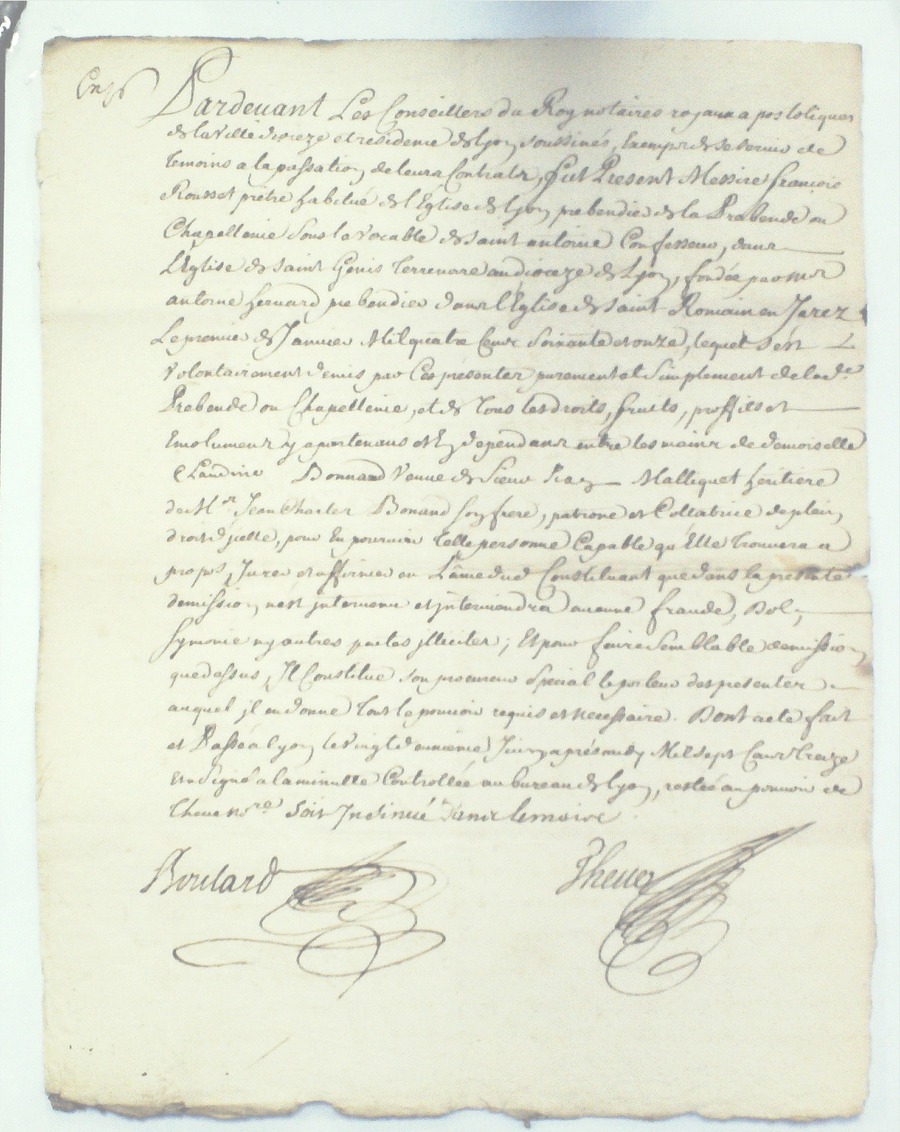 Pardevant Les Conseillers du Roy notaires royaux apostoliques
de la ville dioceze et residence de Lyon soussinés, exempts de se servir de
temoins a la passation de leurs Contrats, fut Present Messire françois
Rousset prêtre habitué de l'Eglise de Lyon, prebendié de la Prebende ou
Chapellenie Sous le vocable de saint antoine Confesseur, dans
L'Eglise de saint Genis terrenoire au dioceze de Lyon, fondée par mr
antoine prebendier dans l'Eglise de saint Romain en Jarez
Le premier de Janvier Mil quatre Cens Soixante et onze, lequel s'est
Volontairement demis par Ces presentes purement et Simplement de lade
Prebende ou Chapellenie, et de tous les droits, fruits, proffits et
Emolumens y apartenans et En dependans entre les mains de demoiselle
Claudine Bonnand Veuve de Sieur Malliquet héritiere
de Mr Jean Charles Bonand Son frere, patrone et Collatrice de plein
droit d'jcelle, pour En pourvoir telle personne Capable qu'Elle trouvera a
propos, Juré et affirmé en L'âme dud Constituant que dans la presente
demission n'est jntervenu et jnterviendra aucune fraude, Dol,
Symonie ny autres pactes jllicites; Et pour faire Semblable demission
que dessus, Jl Constitue son procureur Special le porteur des presentes
auquel jl en donne tout le pouvoir requis et necessaire. Dont acte fait
et Passé a Lyon le vingt deuxième Juin après midy Mil sept Cens treize
Et a Signé a la minutte Controllée au bureau de Lyon, restée au pouvoir de
Theve nre Soit Insinué
Boulard Theve